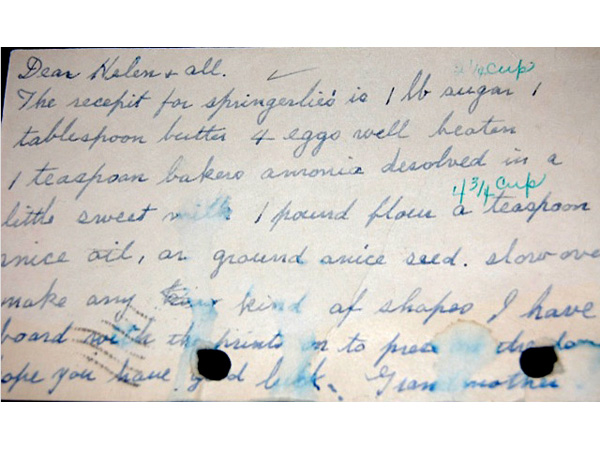 2 1/4 cup
Dear Helen & all.
The recepit for springerlies is 1 lb sugar 1
tablespoon butter 4 eggs well beaten
1 teaspoon bakers amonia desolved in a
4 3/4 cup
little sweet milk 1 pound flour a teaspoon
anice oil, or ground anice seed. slow ove
make any kind of shapes I have
board with the prints on to press the do
ope you have good luck. Grandmother